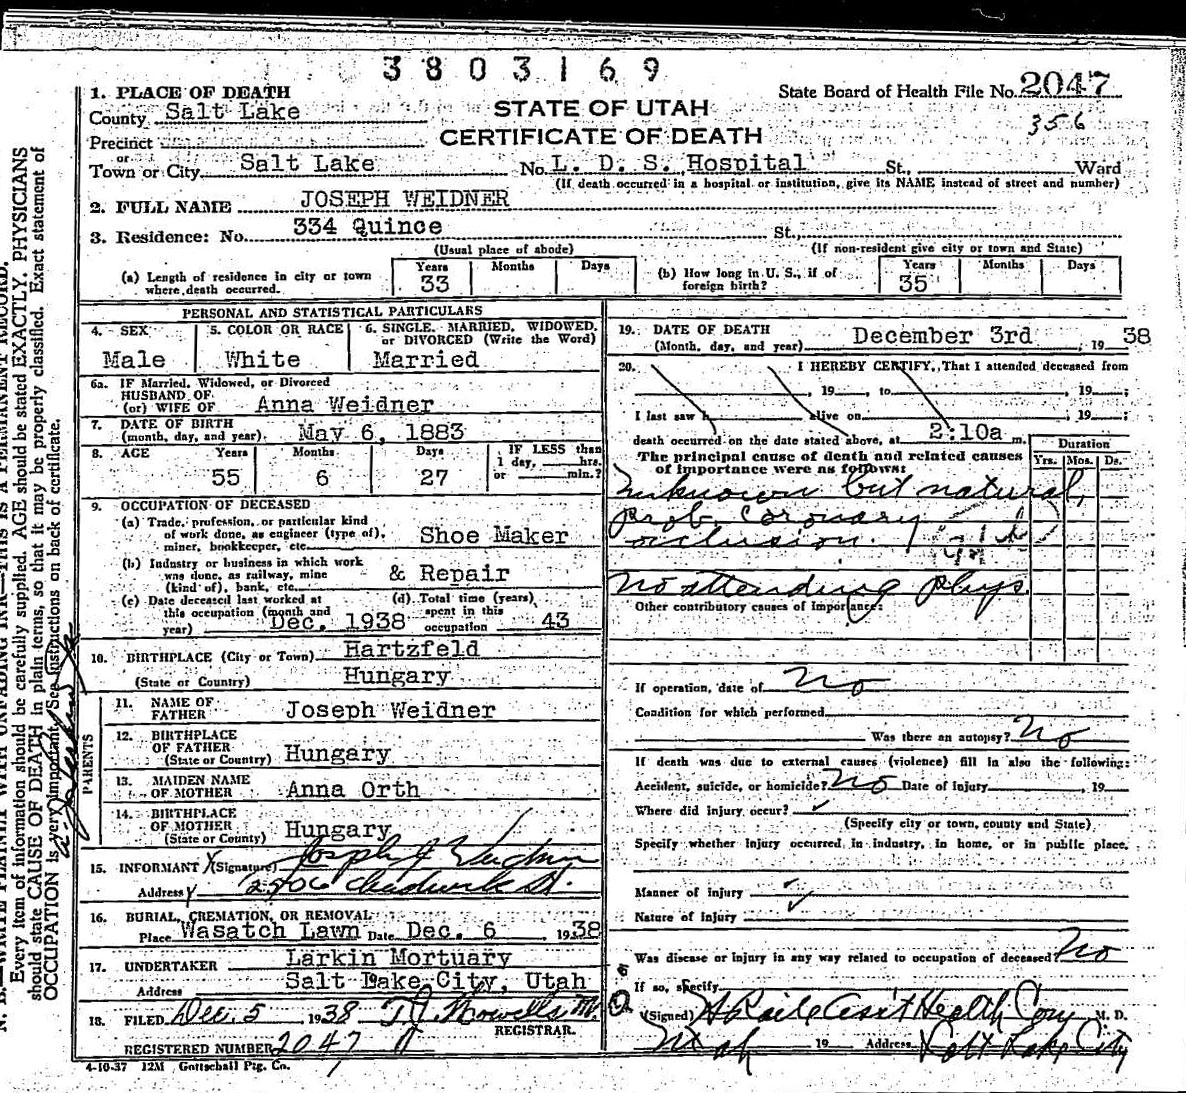 3803169
State Board of Health File No. 2047
356
STATE OF UTAH
CERTIFICATE OF DEATH
1. PLACE OF DEATH
County Salt Lake
Precinct
or
Town or City Salt Lake No. L. D. S. Hospital St., Ward
(If death occurred in a hospital or institution, give its NAME instead of street and number)
2. FULL NAME JOSEPH WEIDNER
3. Residence: No. 334 Quince St.,
(Usual place of abode) (If non-resident give city or town and State)
(a) Length of residence in city or town where death occurred. Years 33 Months Days
(b) How long in U. S., if of foreign birth? Years 35 Months Days
PERSONAL AND STATISTICAL PARTICULARS
4. SEX Male
5. COLOR OR RACE White
6. SINGLE, MARRIED, WIDOWED, or DIVORCED (Write the Word) Married
6a. IF Married, Widowed, or Divorced
HUSBAND OF
(or) WIFE OF Anna Weidner
7. DATE OF BIRTH
(month, day, and year) May 6, 1883
8. AGE Years 55 Months 6 Days 27
IF LESS than 1 day, hrs. or min.?
9. OCCUPATION OF DECEASED
(a) Trade, profession, or particular kind
of work done, as engineer (type of),
miner, bookkeeper, etc. Shoe Maker
(b) Industry or business in which work
was done, as railway, mine
(kind of), bank, etc. & Repair
(c) Date deceased last worked at
this occupation (month and
year) Dec. 1938
(d) Total time (years)
spent in this
occupation 43
10. BIRTHPLACE (City or Town) Hartzfeld
(State or Country) Hungary
PARENTS
11. NAME OF FATHER Joseph Weidner
12. BIRTHPLACE OF FATHER
(State or Country) Hungary
13. MAIDEN NAME OF MOTHER Anna Orth
14. BIRTHPLACE OF MOTHER
(State or County) Hungary
15. INFORMANT X (Signature) Joseph J Weidner
Address
16. BURIAL, CREMATION, OR REMOVAL
Place Wasatch Lawn Date Dec. 6 1938
17. UNDERTAKER Larkin Mortuary
Address Salt Lake City, Utah
18. FILED Dec. 5 1938
REGISTRAR.
REGISTERED NUMBER 2047
4-10-37 12M Gottschall Ptg. Co.
19. DATE OF DEATH
(Month, day, and year) December 3rd, 1938
20. I HEREBY CERTIFY, That I attended deceased from
, 19 , to , 19 ;
I last saw h alive on , 19 ;
death occurred on the date stated above, at 2:10a m.
The principal cause of death and related causes
of importance were as follows:
Duration
Yrs. Mos. Ds.
Unknown but natural,
prob. coronary
occlusion.
No attending phys.
Other contributory causes of importance:
If operation, date of No
Condition for which performed
Was there an autopsy? No
If death was due to external causes (violence) fill in also the following:
Accident, suicide, or homicide? No Date of injury , 19
Where did injury occur?
(Specify city or town, county and State)
Specify whether injury occurred in industry, in home, or in public place.
Manner of injury
Nature of injury
Was disease or injury in any way related to occupation of deceased No
If so, specify
(Signed) Ass't Health Com M. D.
Utah 19 Address Salt Lake City
N. B.—WRITE PLAINLY WITH UNFADING INK—THIS IS A PERMANENT RECORD.
Every item of information should be carefully supplied. AGE should be stated EXACTLY. PHYSICIANS
should state CAUSE OF DEATH in plain terms, so that it may be properly classified. Exact statement of
OCCUPATION is very important. See instructions on back of certificate.